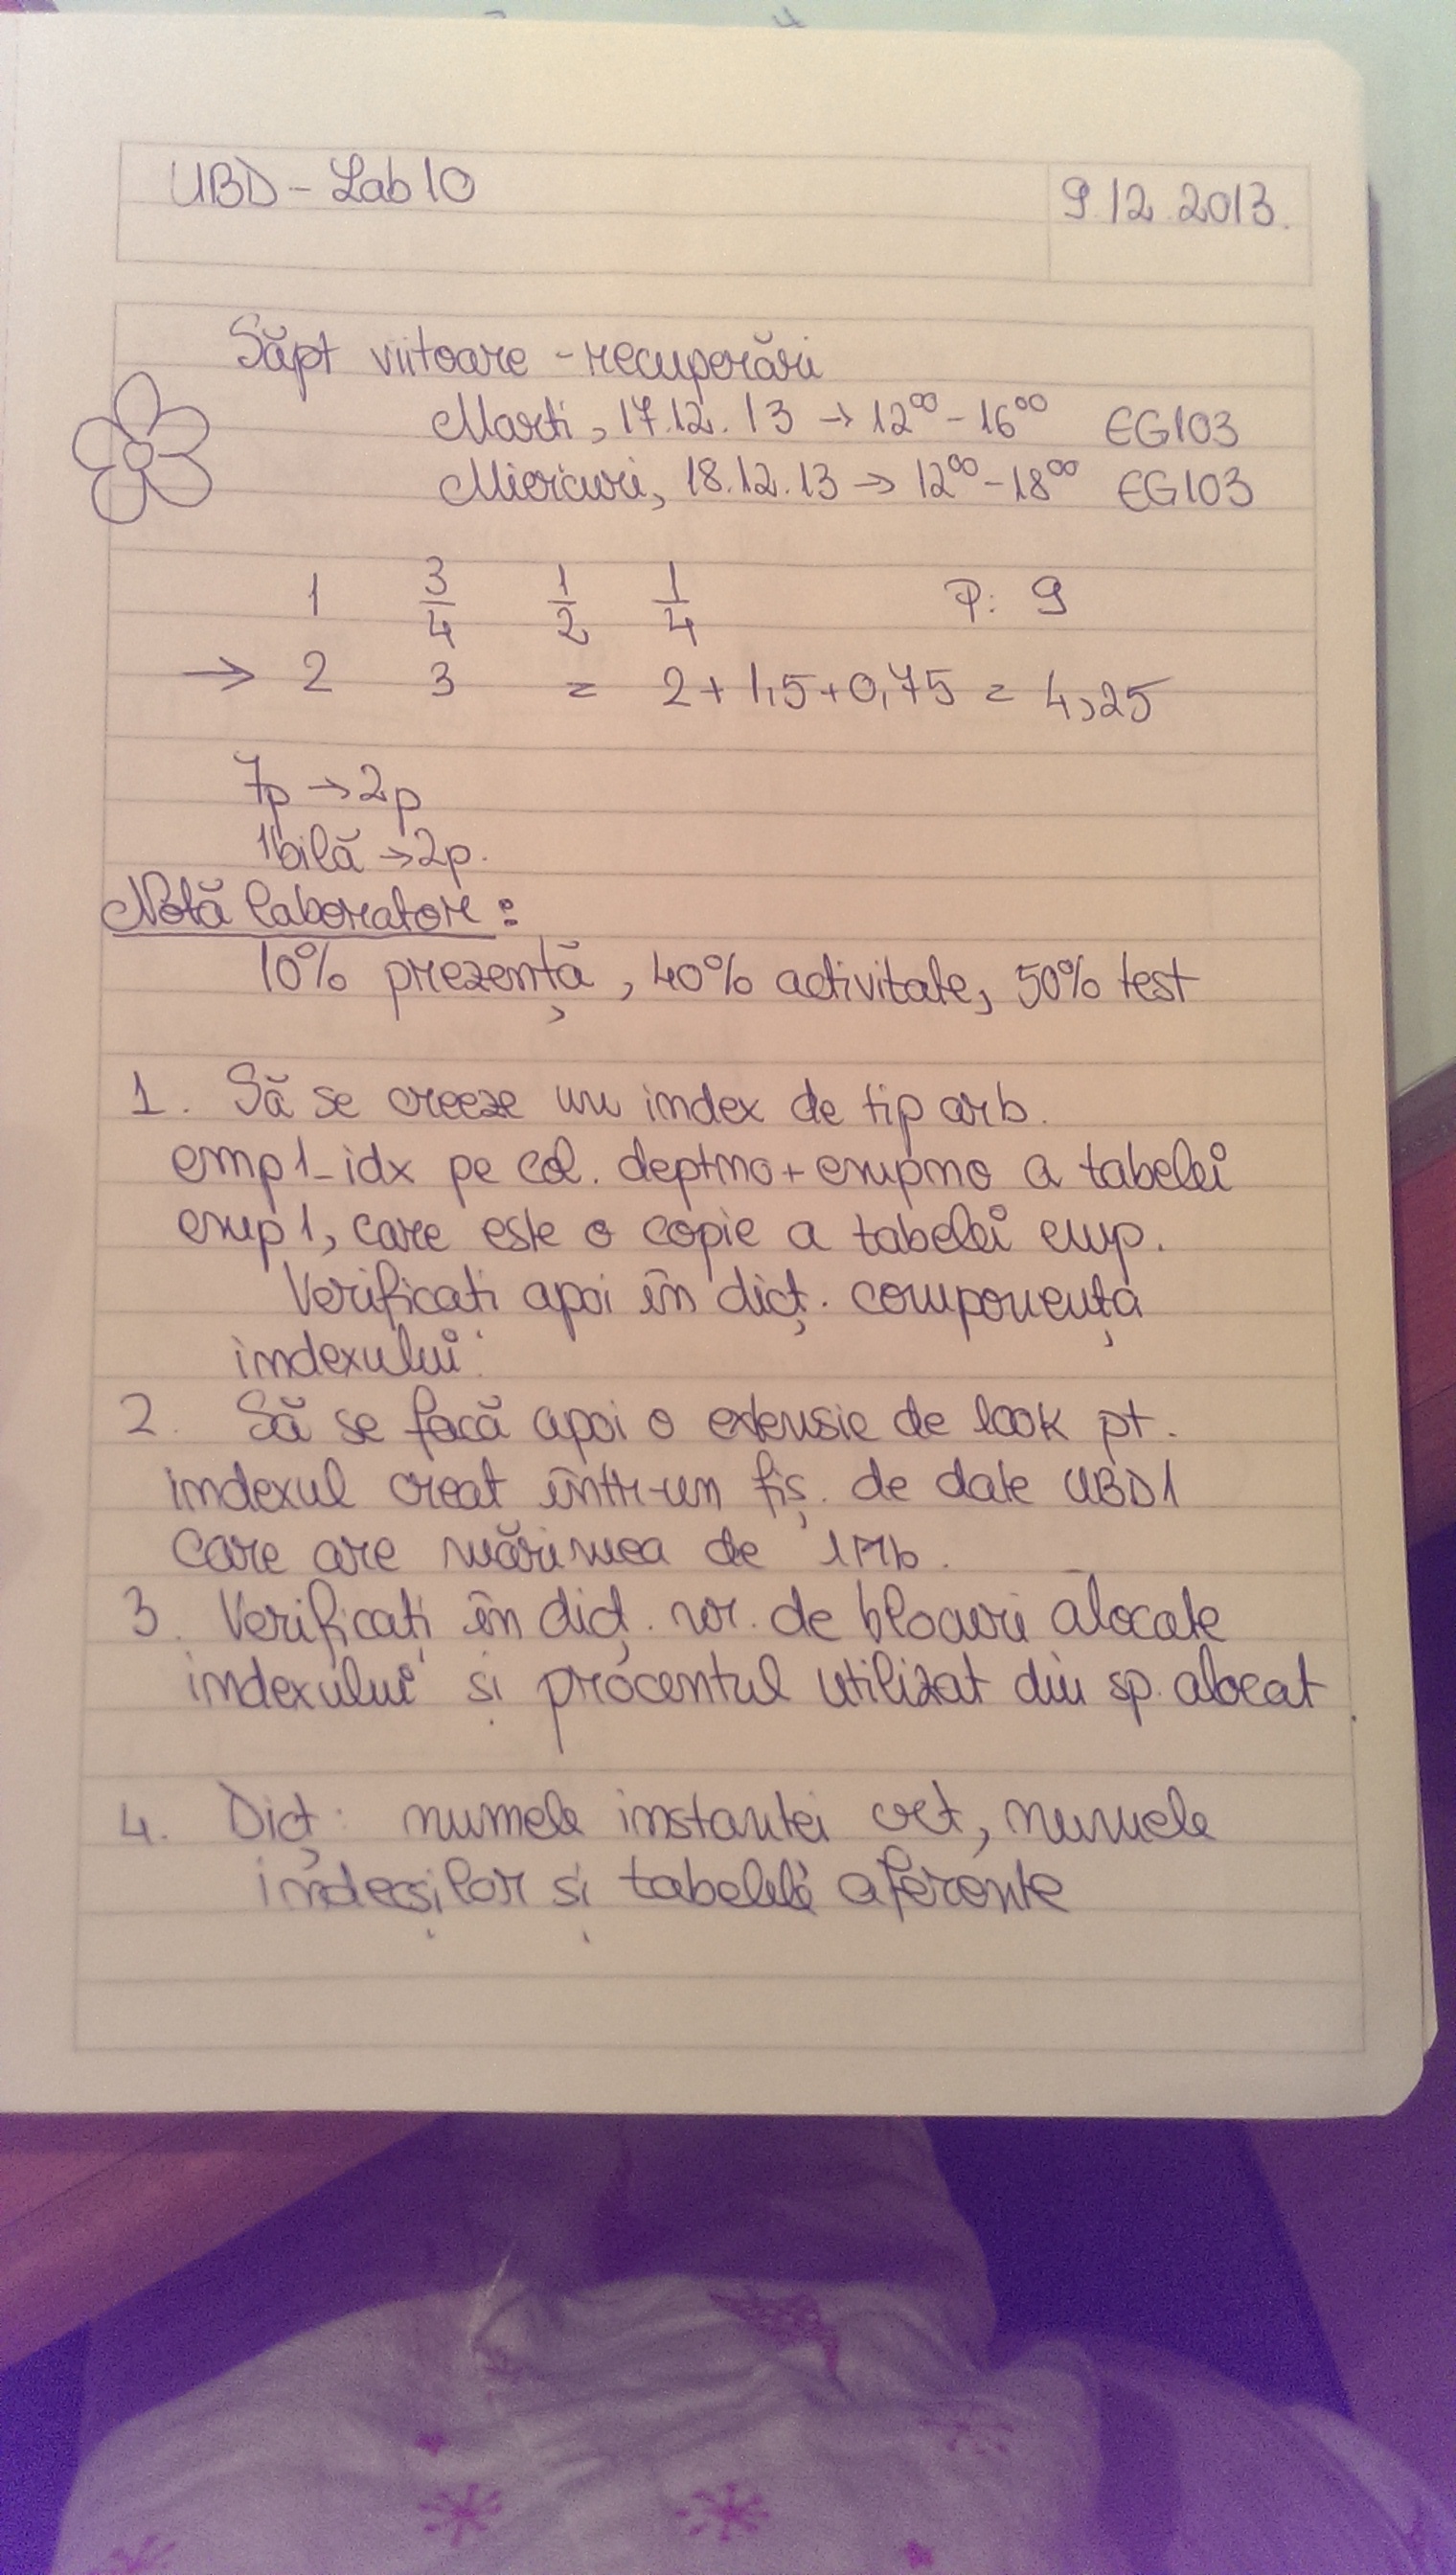 UBD - Lab 10
9.12.2013.
Săpt viitoare - recuperări
Marti, 17.12.13 → 12⁰⁰ - 16⁰⁰ EG103
Miercuri, 18.12.13 → 12⁰⁰ - 18⁰⁰ EG103
1 3/4 1/2 1/4 P: 9
→ 2 3 = 2 + 1,5 + 0,75 = 4,25
7p → 2p
1bilă → 2p.
Notă laborator:
10% prezență, 40% activitate, 50% test
1. Să se creeze un index de tip arb.
emp1_idx pe col. deptno + empno a tabelei
emp1, care este o copie a tabelei emp.
Verificati apoi în dicț. componența
indexului.
2. Să se facă apoi o extensie de look pt.
indexul creat într-un fiș. de date UBD1
care are mărimea de 1Mb.
3. Verificați în dicț. nr. de blocuri alocate
indexului și procentul utilizat din sp. alocat.
4. Dicț: numele instantei crt, numele
indecșilor și tabelele aferente